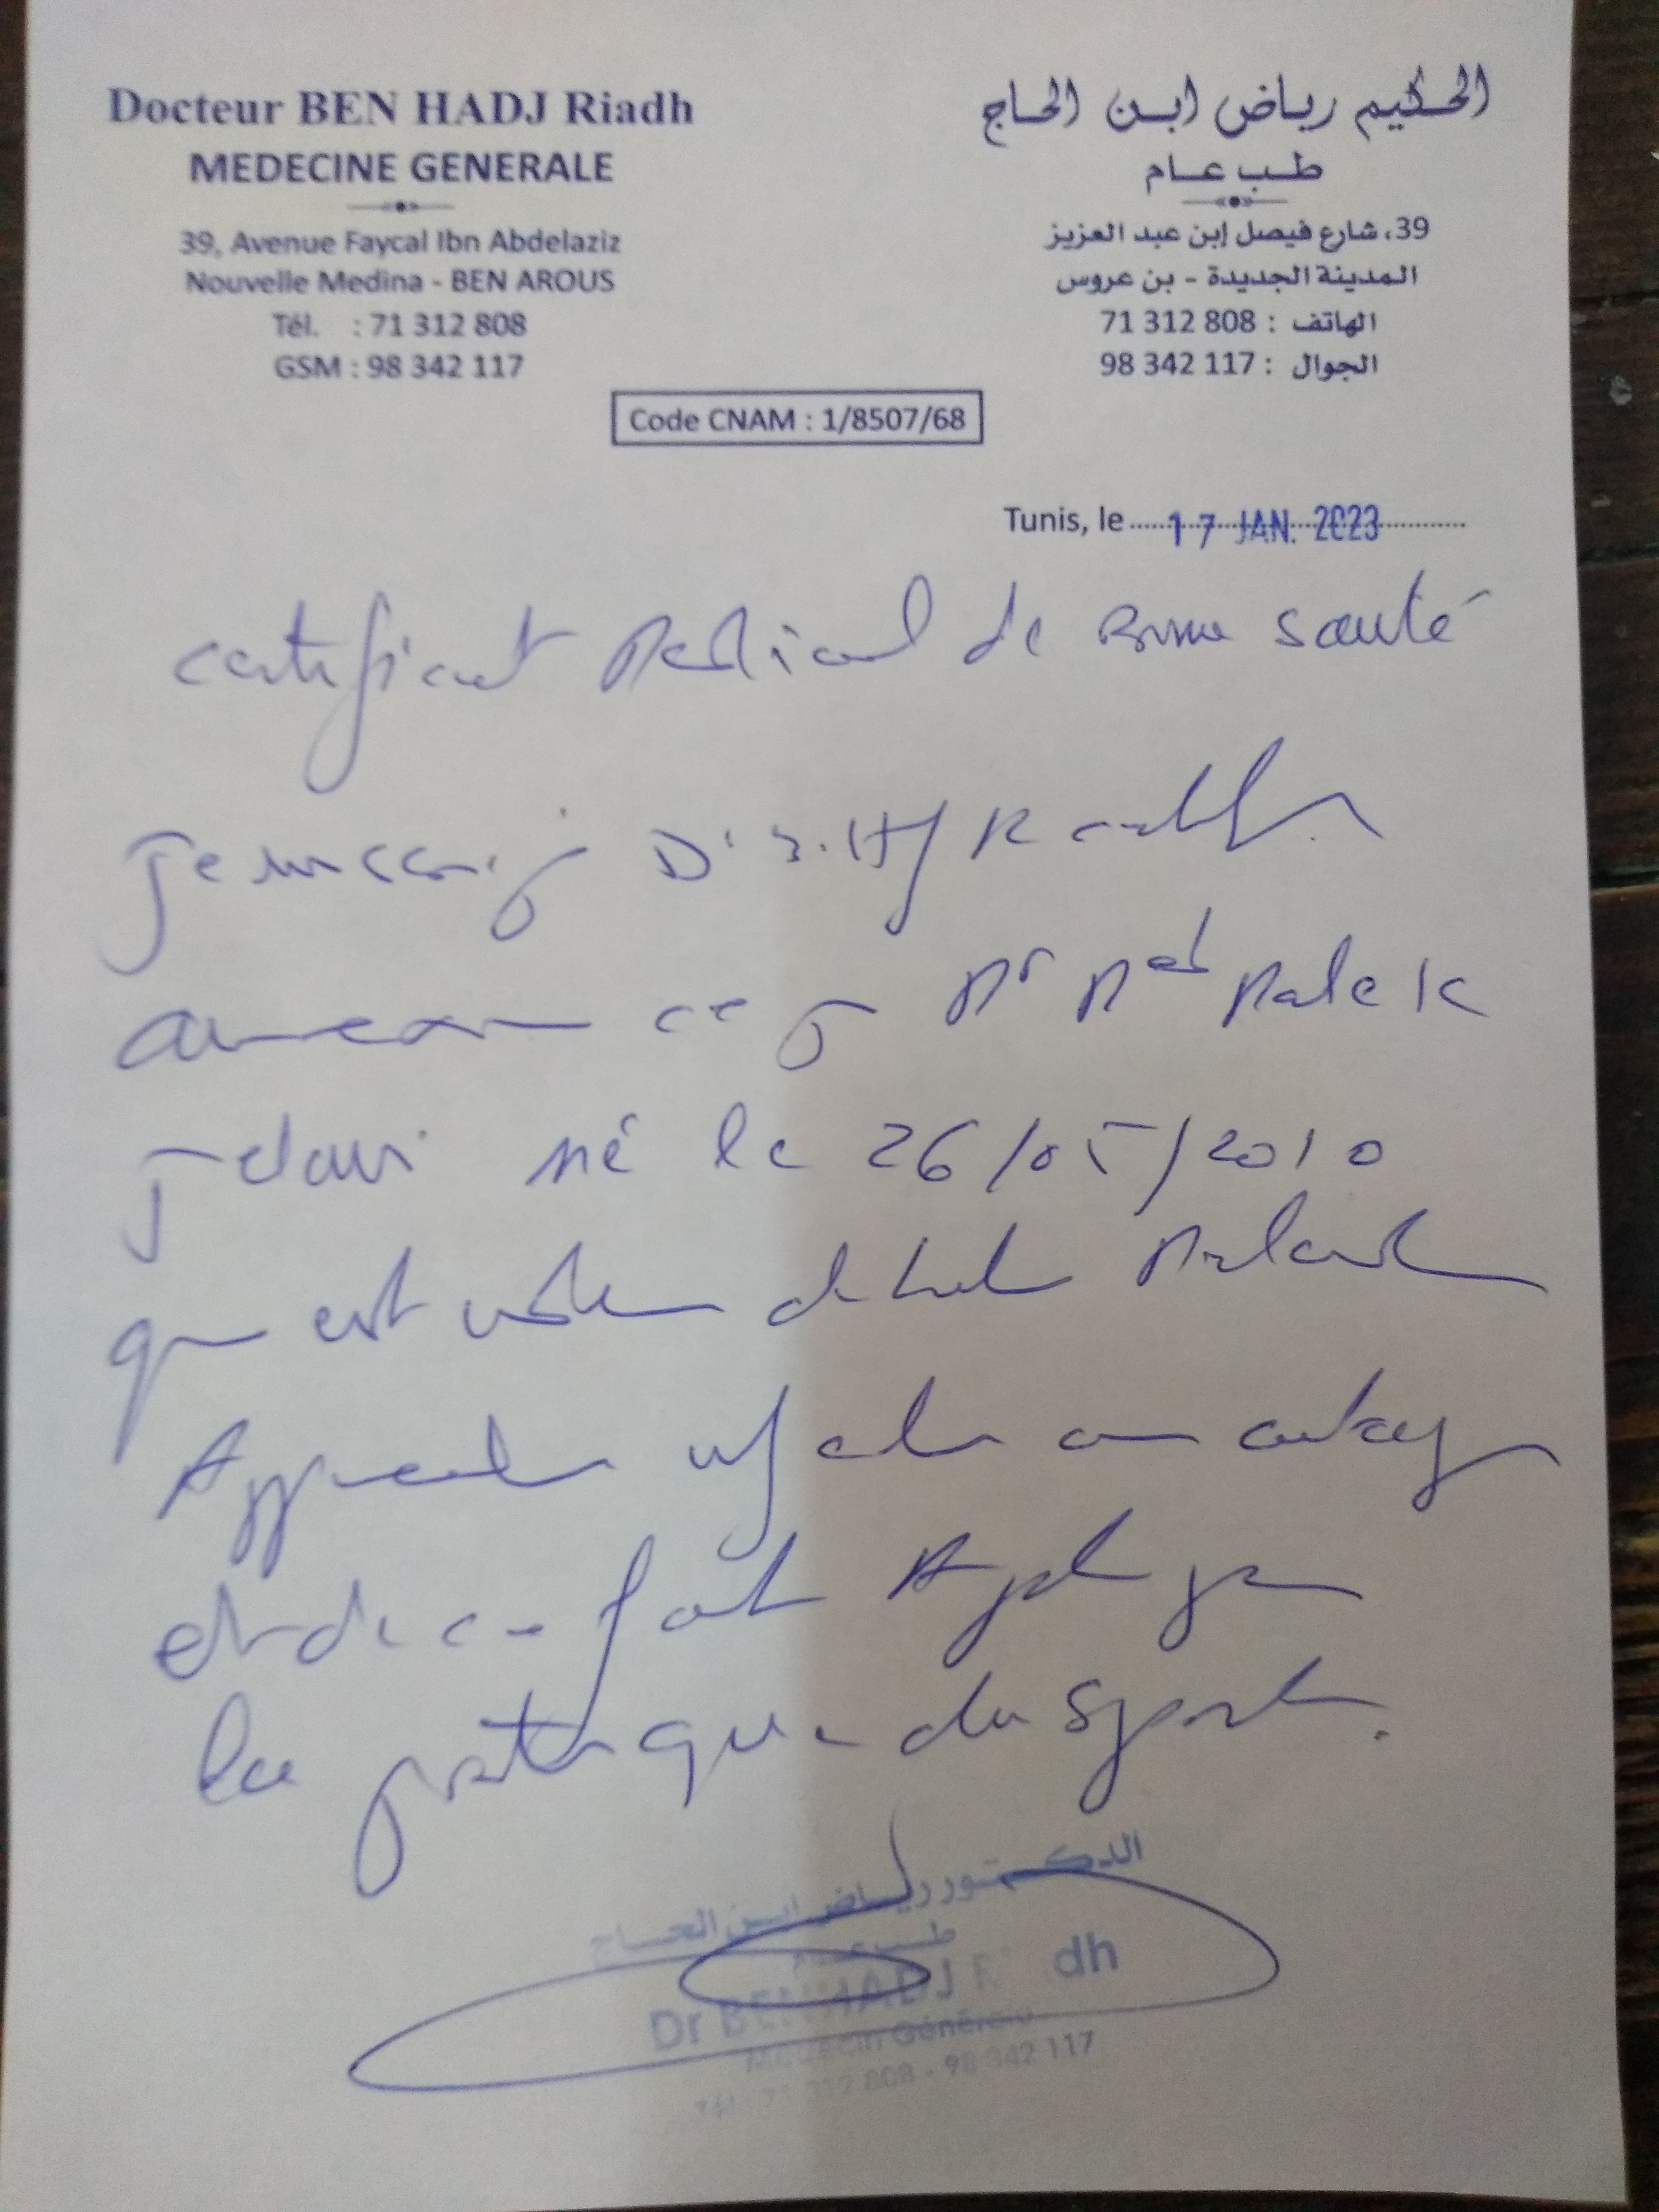 Docteur BEN HADJ Riadh
MEDECINE GENERALE
39, Avenue Faycal Ibn Abdelaziz
Nouvelle Medina - BEN AROUS
Tél. : 71 312 808
GSM : 98 342 117
الحكيم رياض ابن الحاج
طب عام
39، شارع فيصل إبن عبد العزيز
المدينة الجديدة - بن عروس
الهاتف : 71 312 808
الجوال : 98 342 117
Code CNAM : 1/8507/68
Tunis, le 17 JAN. 2023
certificat Medical de Bonne santé
Je soussigné Dr B.Hj Riadh
ce jr Mr Med Malek
né le 26/05/2010
qui est
Apparente
et de ce fait Apte pour
la pratique du sport.
الدكتور رياض ابن الحاج
طب
Dr BEN HADJ dh
Médecin Générale
Tél : 71 312 808 - 98 342 117